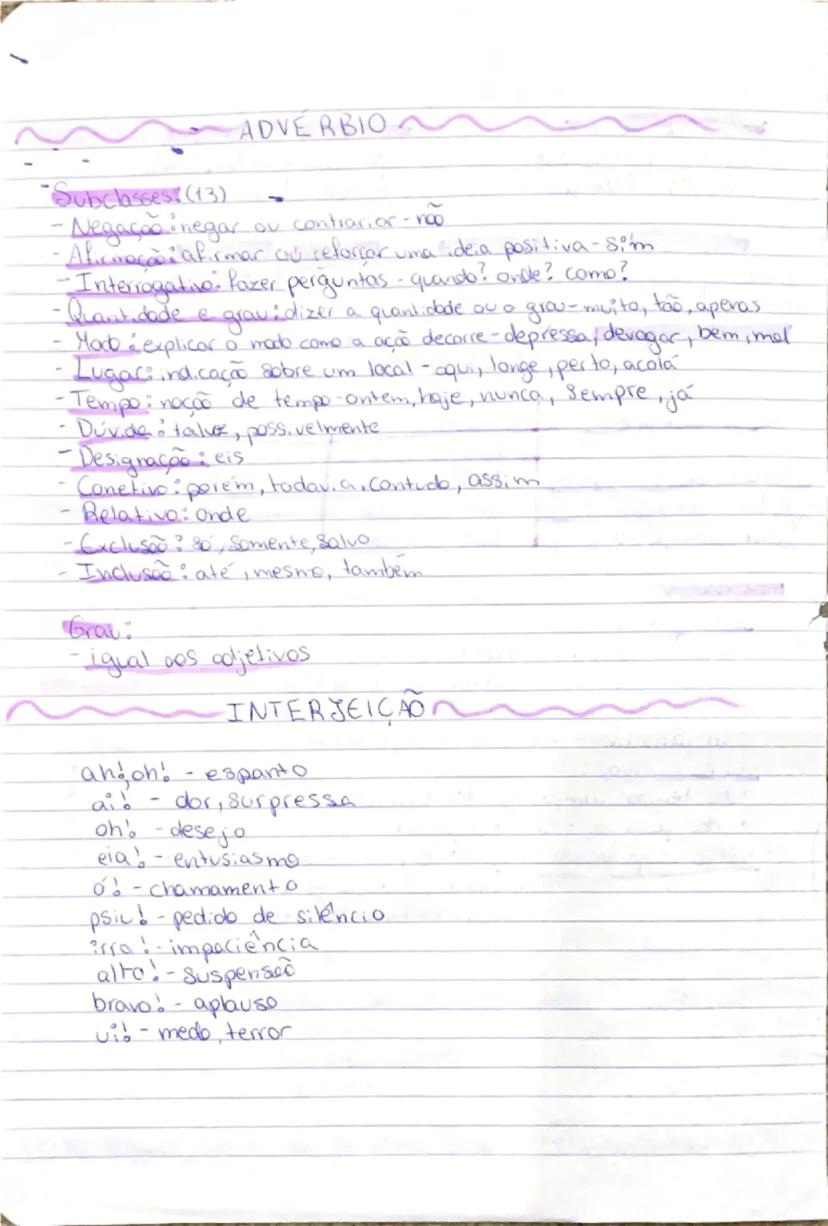 ADVÉRBIO
-Subclasses: (13)
- Negação: negar ou contrariar - não
- Afirmação: afirmar ou reforçar uma ideia positiva - sim
- Interrogativo: fazer perguntas - quando? onde? como?
- Quantidade e grau: dizer a quantidade ou o grau - muito, tão, apenas
- Modo: explicar o modo como a ação decorre - depressa, devagar, bem, mal
- Lugar: indicação sobre um local - aqui, longe, perto, acolá
- Tempo: noção de tempo - ontem, hoje, nunca, sempre, já
- Dúvida: talvez, possivelmente
- Designação: eis
- Conetivo: porém, todavia, contudo, assim
- Relativo: onde
- Exclusão: só, somente, salvo
- Inclusão: até, mesmo, também
Grau:
- igual aos adjetivos
INTERJEIÇÃO
ah!, oh! - espanto
ai! - dor, surpressa
oh! - desejo
eia! - entusiasmo
ó! - chamamento
psiu! - pedido de silêncio
irra! - impaciência
alto! - suspensão
bravo! - aplauso
ui! - medo, terror